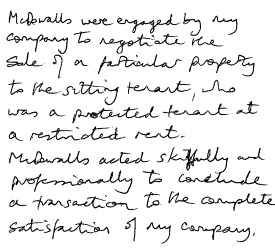 McDowalls were engaged by my
company to negotiate the
sale of a particular property
to the sitting tenant, who
was a protected tenant at
a restricted rent.
McDowalls acted skilfully and
professionally to conclude
a transaction to the complete
satisfaction of my company.